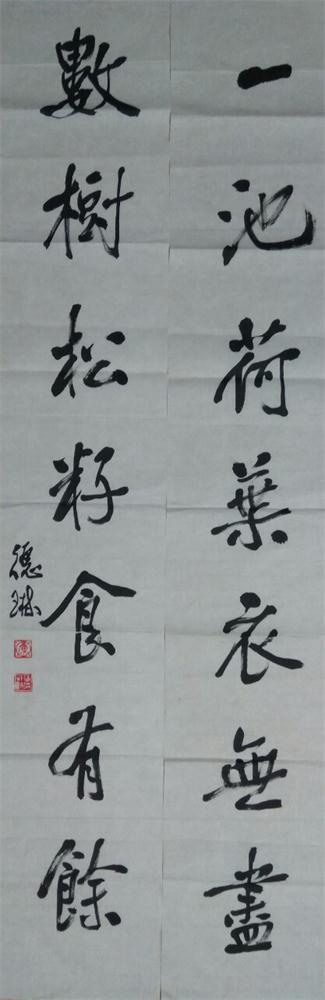 一池荷葉衣無盡
數樹松籽食有餘